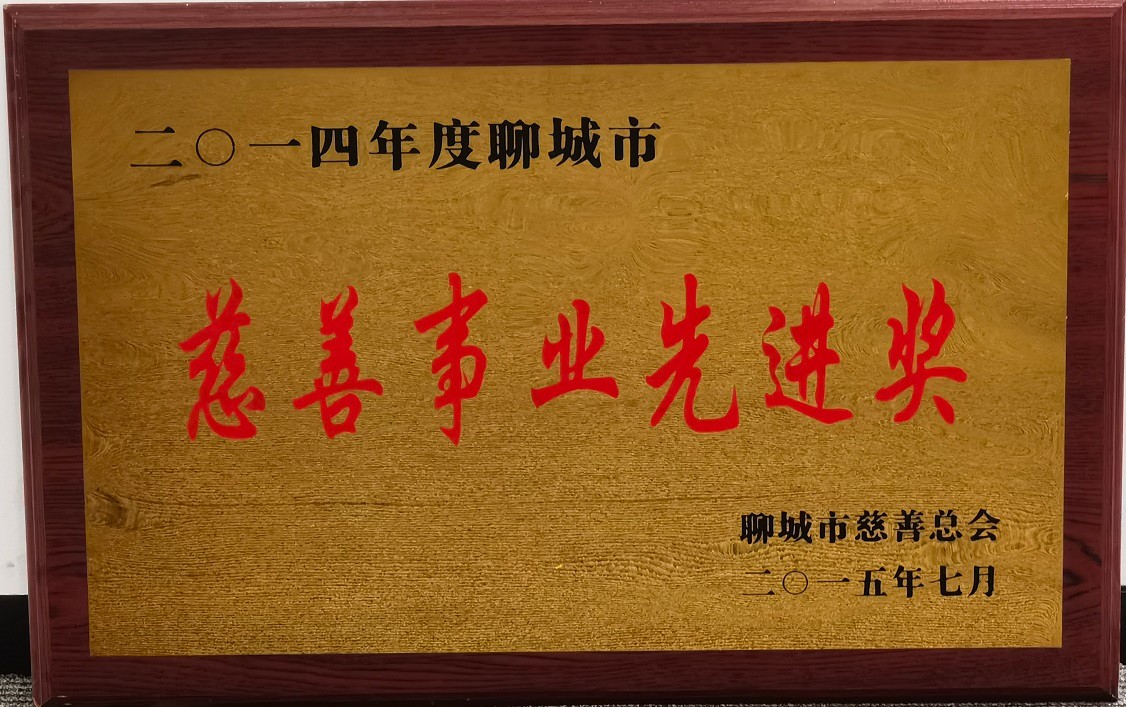 二〇一四年度聊城市
慈善事业先进奖
聊城市慈善总会
二〇一五年七月